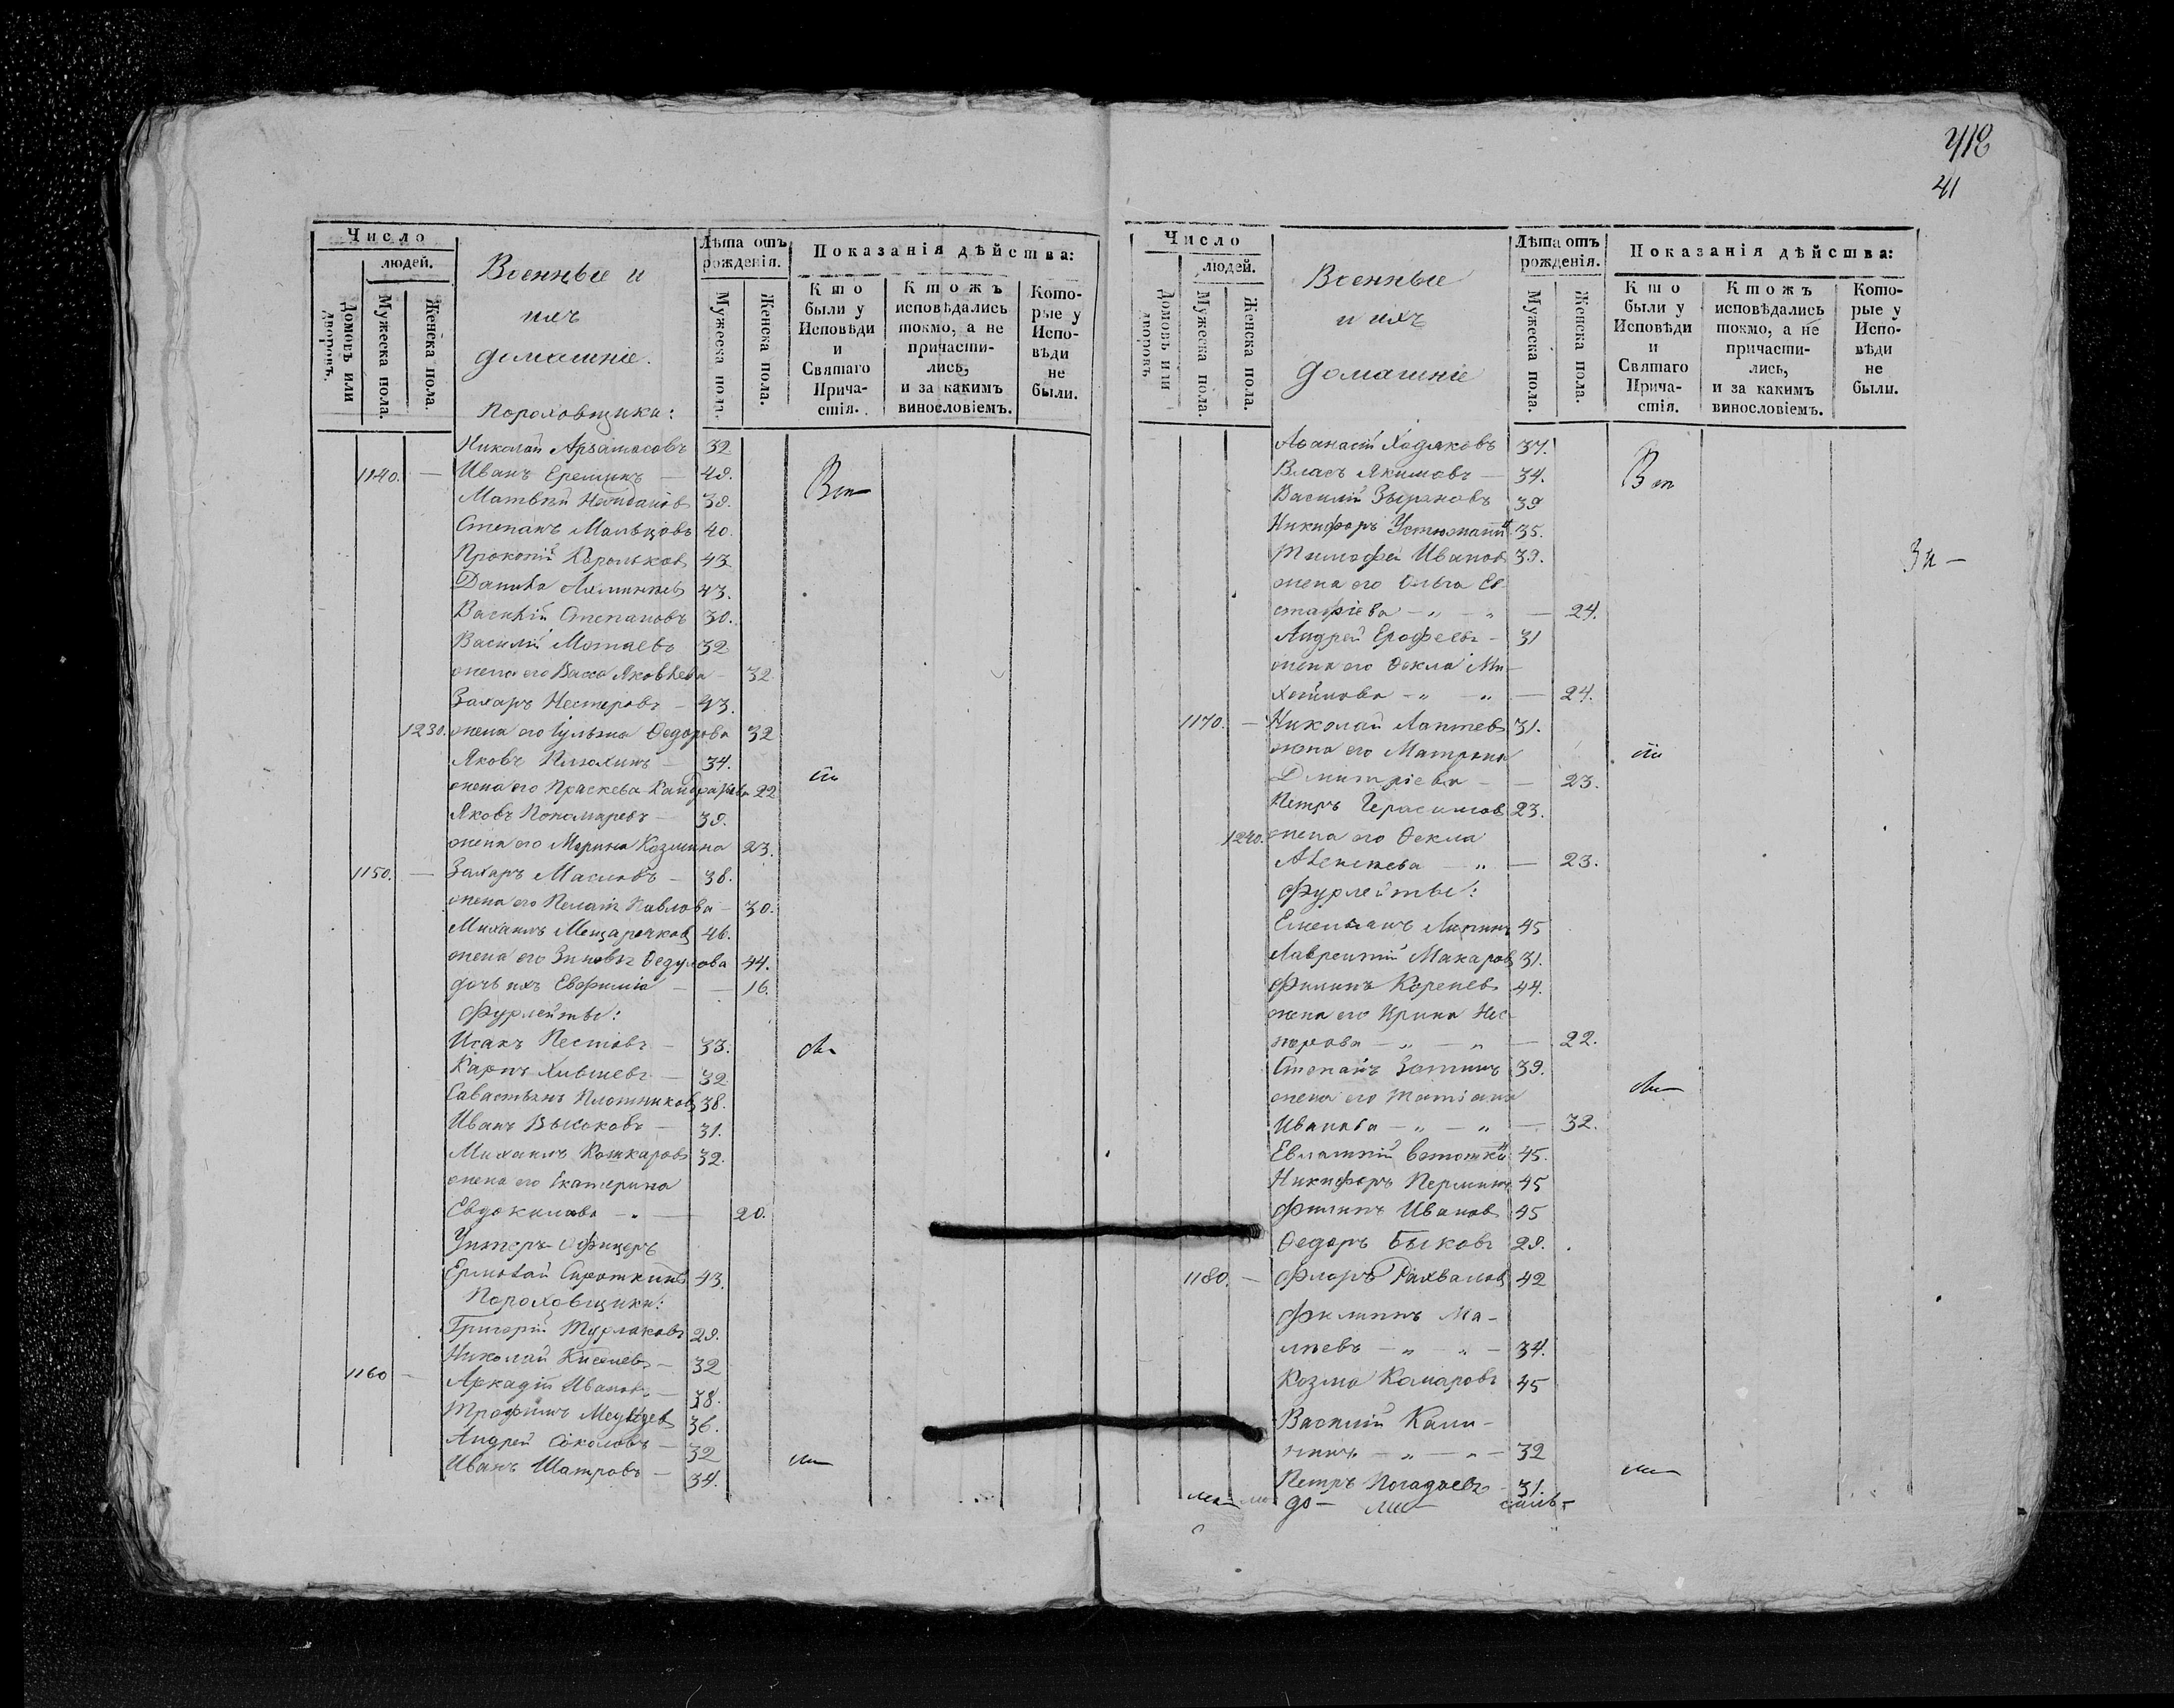 418
41
Число
людей.
Домовъ или дворовъ.
Мужеска пола.
Женска пола.
Военные и
ихъ
домашніе.
Лѣта отъ
рожденія.
Мужеска пола.
Женска пола.
Показанія дѣйства:
Кто
были у
Исповѣди
и
Святаго
Прича-
стія.
Ктожъ
исповѣдались
токмо, а не
причасти-
лись,
и за какимъ
винословіемъ.
Кото-
рые у
Испо-
вѣди
не
были.
Пороховщики:
Николай Арзамасовъ 32
1140. — Иванъ Ереминъ — 49.
Матвѣй Найдановъ 39.
Степанъ Мальцовъ 40.
Прокопій Корольковъ 43
Данила 43.
Василій Степановъ 30.
Василій Мотаевъ 32
жена его Васса Яковлева — 32
Захаръ Нестеровъ — 43.
1230. жена его Ѳедорова 32
Яковъ Плюхинъ — 34.
жена его Праскева 22
Яковъ Пономаревъ — 39.
жена его Марина Козмина 23.
1150. — Захаръ Масловъ — 38.
жена его Пелагія Павлова — 30.
Михаилъ 46.
жена его Зиновья Ѳедулова 44.
дочь ихъ Евфимія — — 16.
Фурлейты:
Исакъ Пестовъ — 33.
Карпъ — 32
Савастьянъ Плотниковъ 38.
Иванъ Высоковъ — 31.
Михаилъ Кошкаровъ 32.
жена его Екатерина
Евдокимова — „ — 20.
Унтеръ-Офицеръ
Ермолай Сироткинъ 43.
Пороховщики:
Григорій Турлаковъ 29.
Николай Киселевъ — 32
1160 — Аркадій Ивановъ — 38.
Трофимъ Медвѣдевъ 36.
Андрей Соколовъ — 32
Иванъ Шатровъ — 34.
Число
людей.
Домовъ или дворовъ.
Мужеска пола.
Женска пола.
Военные
и ихъ
домашніе
Лѣта отъ
рожденія.
Мужеска пола.
Женска пола.
Показанія дѣйства:
Кто
были у
Исповѣди
и
Святаго
Прича-
стія.
Ктожъ
исповѣдались
токмо, а не
причасти-
лись,
и за какимъ
винословіемъ.
Кото-
рые у
Испо-
вѣди
не
были.
Аѳанасій Ходяковъ 37.
Власъ Якимовъ — 34.
Василій Зыряновъ 39
Никифоръ 35.
Тимофей Ивановъ 39.
жена его Ольга Ев-
стафіева — „ — „ — 24.
Андрей Ерофеевъ — 31
жена его Ѳекла Ми-
хайлова — „ — „ — 24.
1170. — Николай Лаптевъ 31.
жена его Матрена
Дмитріева — — 23.
Петръ Герасимовъ 23.
1240. жена его Ѳекла
Алексѣева — „ — 23.
Фурлейты:
Емельянъ 45
Лаврентій Макаровъ 31.
Филипъ Кореневъ 44.
жена его Ирина Нес-
терова — „ — „ — 22.
Степанъ Зотинъ 39.
жена его Татіана
Иванова — „ — „ — 32.
Евлампій 45.
Никифоръ Перминъ 45
Филипъ Ивановъ 45
Ѳедоръ Быковъ 29.
1180. — Флоръ Рахвановъ 42
Филиппъ Ма-
лѣевъ — „ — „ — 34.
Козма Комаровъ 45
Василій Кали-
нинъ — „ — „ — 32
Петръ Погадаевъ — 31.